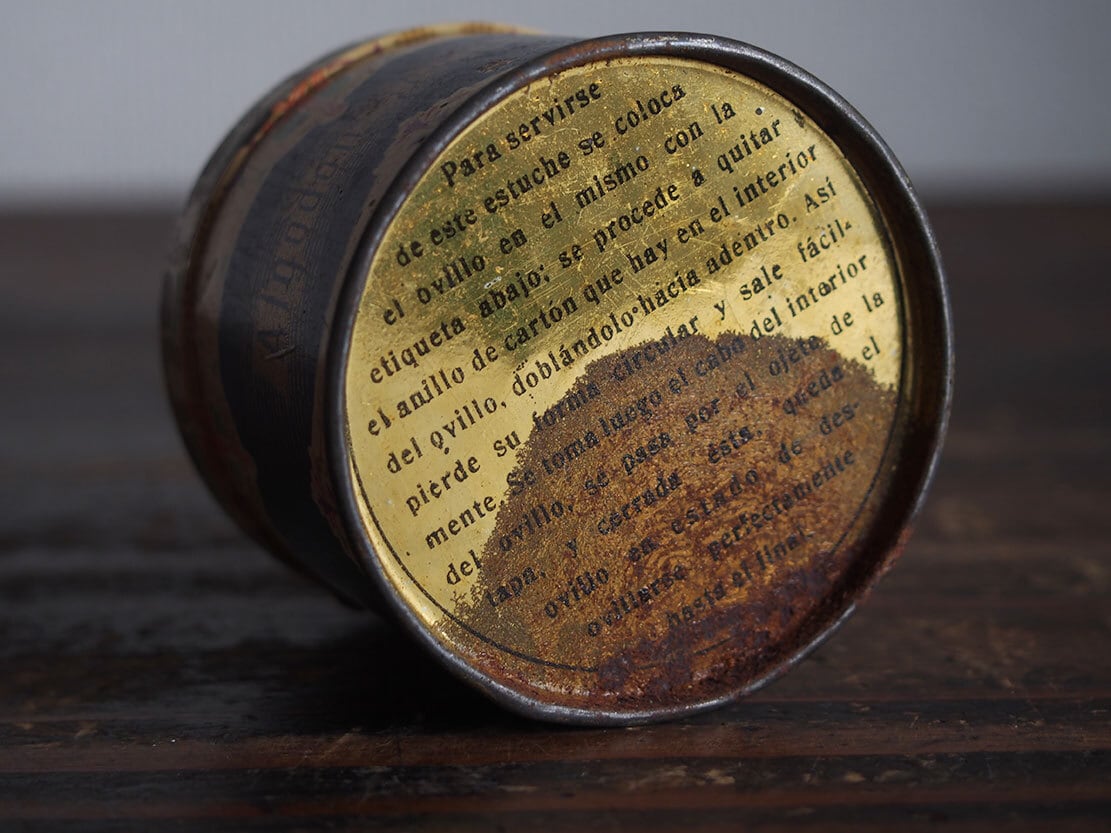 Para servirse
de este estuche se coloca
el ovillo en el mismo con la
etiqueta abajo; se procede á quitar
el anillo de cartón que hay en el interior
del ovillo, doblándolo hacia adentro. Así
pierde su forma circular y sale fácil-
mente. Se toma luego el cabo del interior
del ovillo, se pasa por el ojete de la
tapa, y cerrada ésta, queda el
ovillo en estado de des-
ovillarse perfectamente
hasta el final.